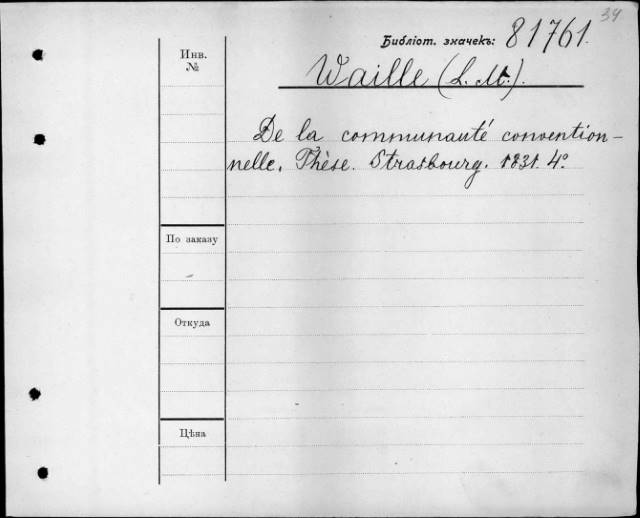 34
Библіот. значекъ: 81761.
Инв. №
Waille (L. M.).
De la communauté convention-
nelle. Thèse. Strasbourg. 1831. 4°.
По заказу
Откуда
Цѣна